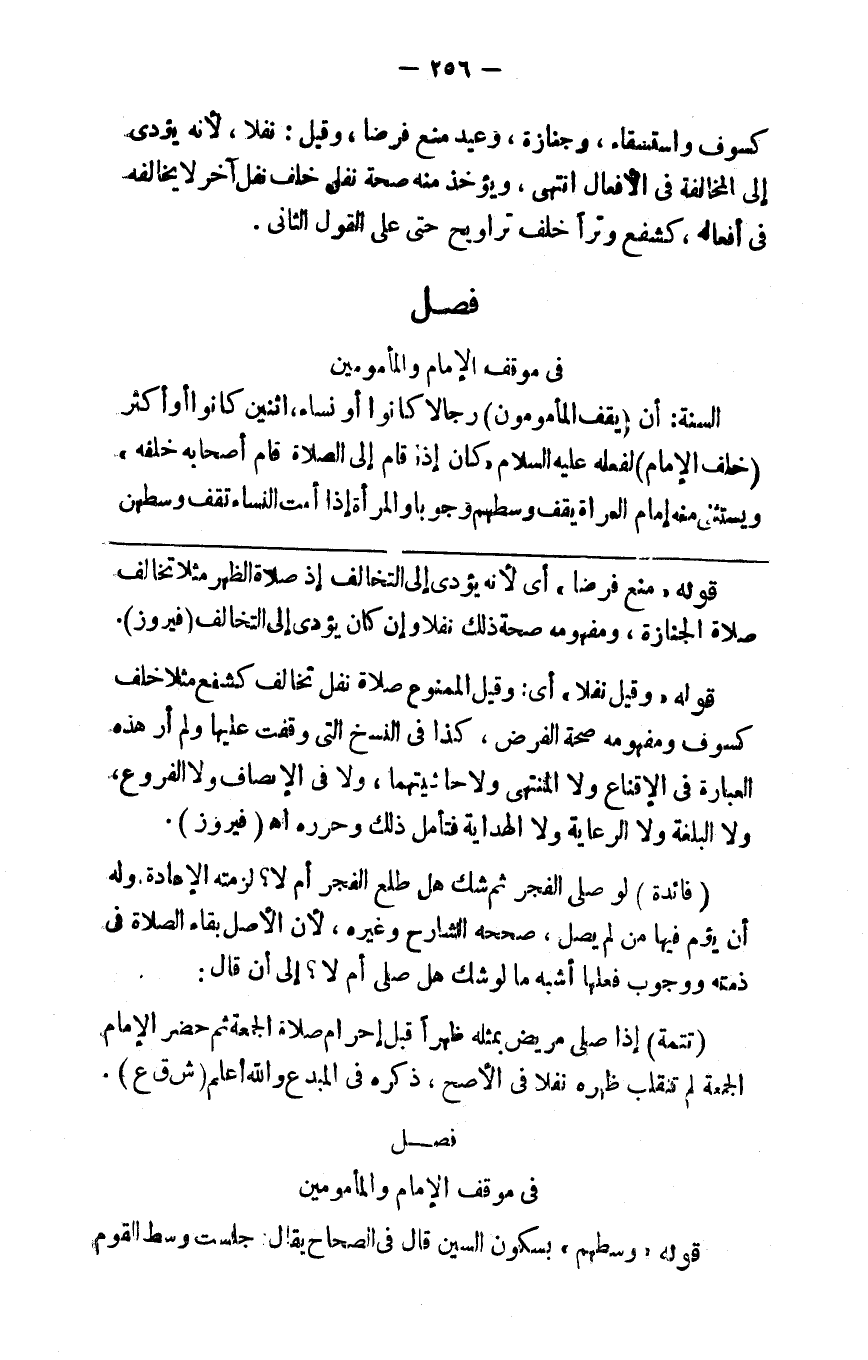 — ٢٥٦ —
كسوف واستسقاء ، وجنازة ، وعيد منع فرضا ، وقيل : نفلا ، لأنه يؤدى
إلى المخالفة فى الأفعال انتهى ، ويؤخذ منه صحة نفل خلف نفل آخر لا يخالفه
فى أفعاله ، كشفع وتراً خلف تراويح حتى على القول الثانى .
فصل
فى موقف الإمام والمأمومين
السنة : أن ( يقف المأمومون ) رجالا كانوا أو نساء ، اثنين كانوا أو أكثر
( خلف الإمام ) لفعله عليه السلام « كان إذا قام إلى الصلاة قام أصحابه خلفه »
ويستثنى منه إمام العراة يقف وسطهم وجوبا والمرأة إذا أمت النساء تقف وسطهن
قوله « منع فرضا » أى لأنه يؤدى إلى التخالف إذ صلاة الظهر مثلا تخالف
صلاة الجنازة ، ومفهومه صحة ذلك نفلا وإن كان يؤدى إلى التخالف ( فيروز ) .
قوله « وقيل نفلا » أى : وقيل الممنوع صلاة نفل تخالف كشفع مثلا خلف
كسوف ومفهومه صحة الفرض ، كذا فى النسخ التى وقفت عليها ولم أر هذه
العبارة فى الإقناع ولا المنتهى ولا حاشيتهما ، ولا فى الإنصاف ولا الفروع ،
ولا البلغة ولا الرعاية ولا الهداية فتأمل ذلك وحرره اه ( فيروز ) .
( فائدة ) لو صلى الفجر ثم شك هل طلع الفجر أم لا ؟ لزمته الإعادة . وله
أن يؤم فيها من لم يصل ، صححه الشارح وغيره ، لأن الأصل بقاء الصلاة فى
ذمته ووجوب فعلها أشبه ما لو شك هل صلى أم لا ؟ إلى أن قال :
( تتمة ) إذا صلى مريض بمثله ظهراً قبل إحرام صلاة الجمعة ثم حضر الإمام
الجمعة لم تنقلب ظهره نفلا فى الأصح ، ذكره فى المبدع والله أعلم ( ش ق ع ) .
فصل
فى موقف الإمام والمأمومين
قوله « وسطهم » بسكون السين قال فى الصحاح يقال : جلست وسط القوم